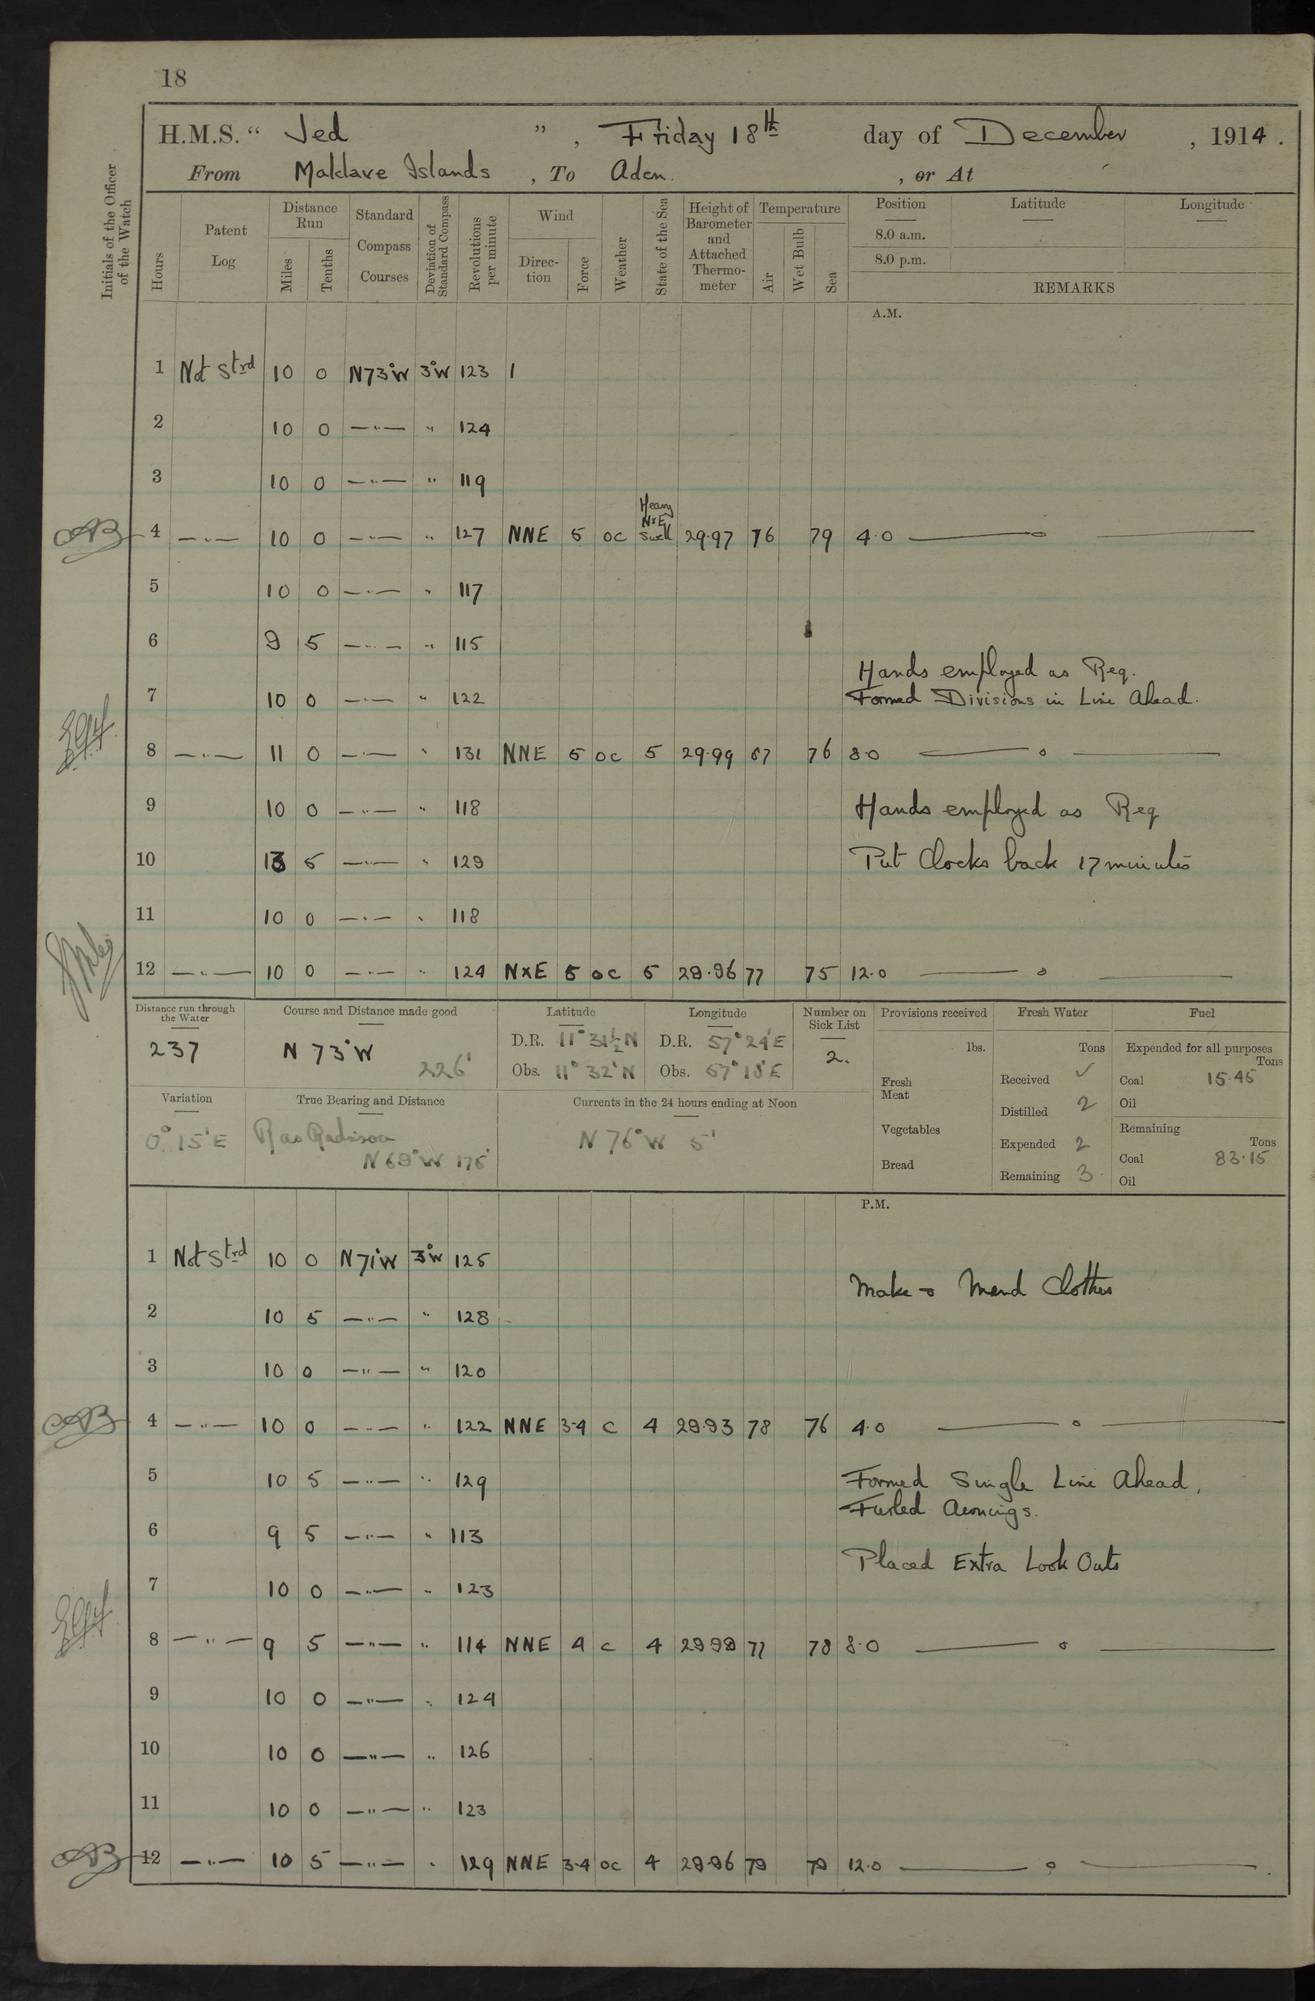 18
H.M.S. “ Jed ” , Friday 18th day of December , 1914 .
From Maldave Islands , To Aden. , or At
Initials of the Officer of the Watch
Hours
Patent Log
Distance Run
Miles
Tenths
Standard Compass Courses
Deviation of Standard Compass
Revolutions per minute
Wind
Direction
Force
Weather
State of the Sea
Height of Barometer and Attached Thermometer
Temperature
Air
Wet Bulb
Sea
Position Latitude Longitude
8.0 a.m.
8.0 p.m.
REMARKS
A.M.
1 Not Strd 10 0 N73°W 3°W 123 1
2 10 0 —"— " 124
3 10 0 —"— " 119
4 —"— 10 0 —"— " 127 NNE 5 oc Heavy NxE Swell 29.97 76 79 4.0 ——o——
5 10 0 —"— " 117
6 9 5 —"— " 115
Hands employed as Req.
7 10 0 —"— " 122 Formed Divisions in Line Ahead.
8 —"— 11 0 —"— " 131 NNE 5 oc 5 29.99 67 76 8.0 ——o——
9 10 0 —"— " 118 Hands employed as Req
10 13 5 —"— " 129 Put Clocks back 17 minutes
11 10 0 —"— " 118
12 —"— 10 0 —"— " 124 NxE 5 oc 5 29.96 77 75 12.0 ——o——
Distance run through the Water
237
Course and Distance made good
N 73°W 226'
Latitude
D.R. 11° 31½ N
Obs. 11° 32' N
Longitude
D.R. 57° 24' E
Obs. 57° 18' E
Number on Sick List
2.
Provisions received
lbs.
Fresh Meat
Vegetables
Bread
Fresh Water
Tons
Received ✓
Distilled 2
Expended 2
Remaining 3
Fuel
Expended for all purposes
Tons
Coal 15.45
Oil
Remaining
Tons
Coal 83.15
Oil
Variation
0° 15' E
True Bearing and Distance
Ras
N 69°W 175'
Currents in the 24 hours ending at Noon
N 76°W 5'
P.M.
1 Not Strd 10 0 N71°W 3°W 125
Make & Mend Clothes
2 10 5 —"— " 128
3 10 0 —"— " 120
4 —"— 10 0 —"— " 122 NNE 3-4 c 4 29.93 78 76 4.0 ——o——
5 10 5 —"— " 129 Formed Single Line Ahead,
Furled Awnings.
6 9 5 —"— " 113
Placed Extra Look Outs
7 10 0 —"— " 123
8 —"— 9 5 —"— " 114 NNE 4 c 4 29 98 77 78 8.0 ——o——
9 10 0 —"— " 124
10 10 0 —"— " 126
11 10 0 —"— " 123
12 —"— 10 5 —"— " 129 NNE 3-4 oc 4 29.96 79 79 12.0 ——o——